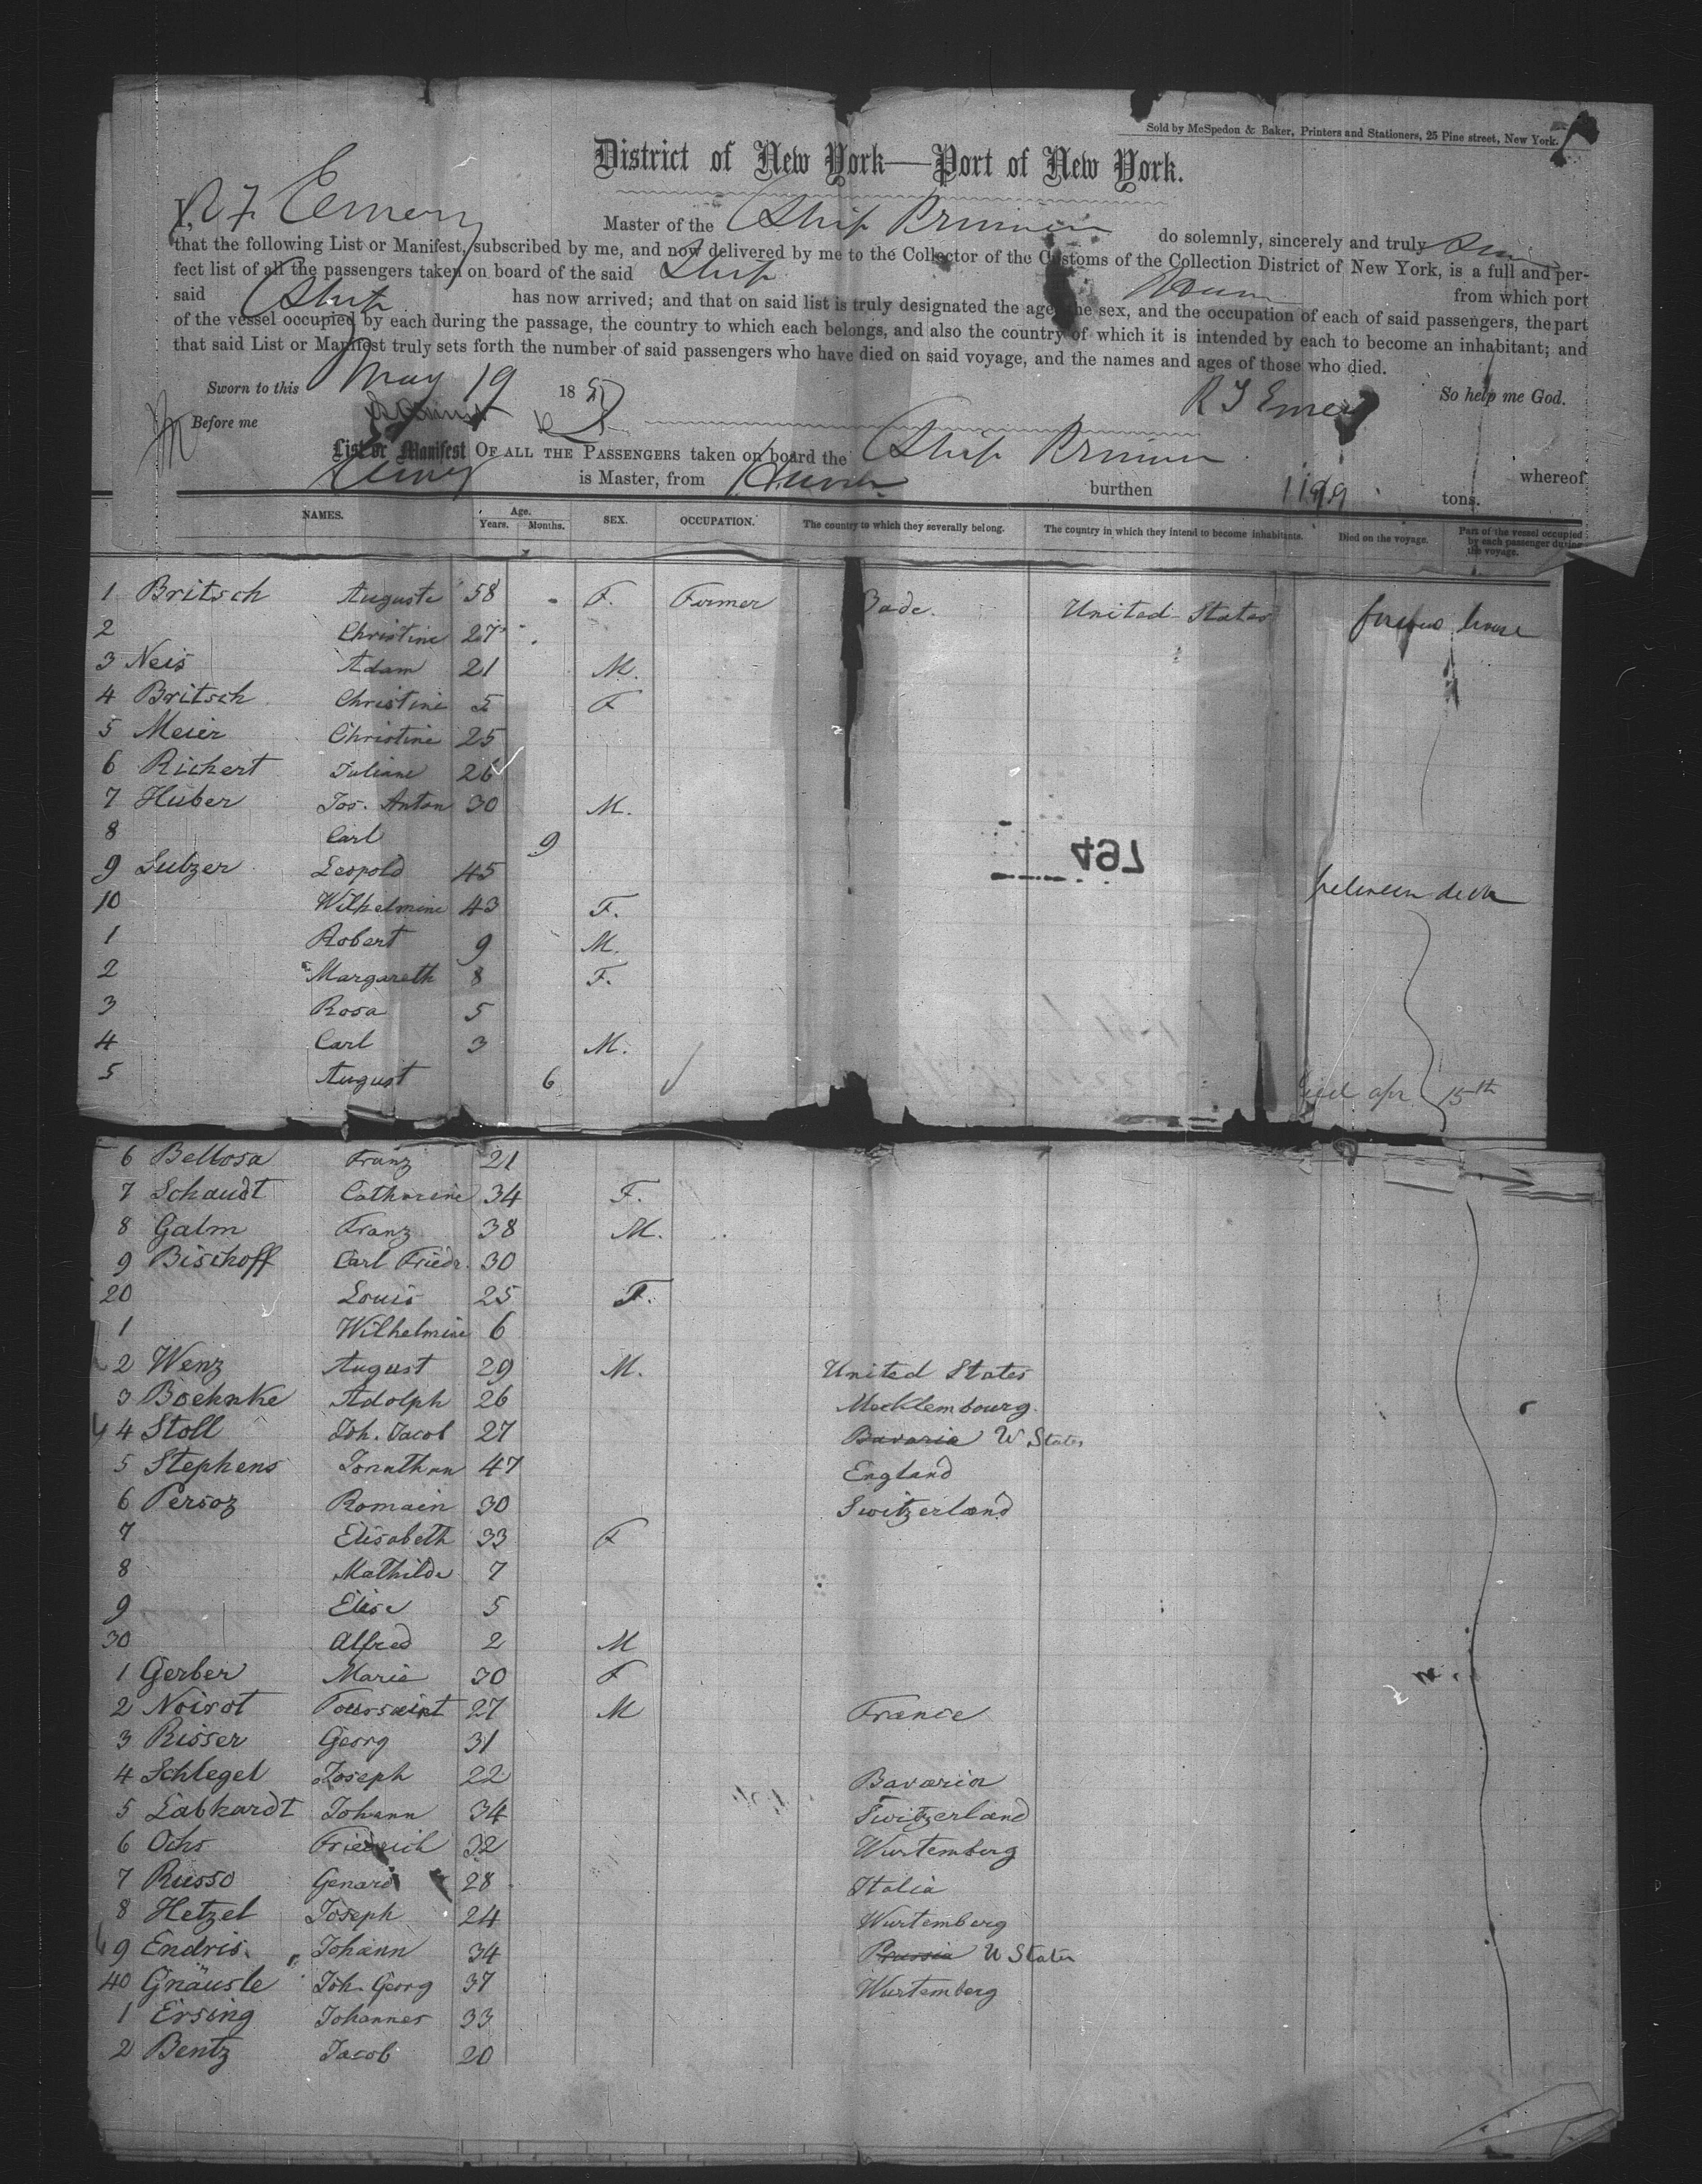 Sold by McSpedon & Baker, Printers and Stationers, 25 Pine street, New York.
District of New York—Port of New York.
I, R F Emery Master of the Ship do solemnly, sincerely and truly
that the following List or Manifest, subscribed by me, and now delivered by me to the Collector of the Customs of the Collection District of New York, is a full and per-
fect list of all the passengers taken on board of the said Ship from which port
said Ship has now arrived; and that on said list is truly designated the age, the sex, and the occupation of each of said passengers, the part
of the vessel occupied by each during the passage, the country to which each belongs, and also the country of which it is intended by each to become an inhabitant; and
that said List or Manifest truly sets forth the number of said passengers who have died on said voyage, and the names and ages of those who died.
Sworn to this May 19 18 So help me God.
Before me
List or Manifest OF ALL THE PASSENGERS taken on board the Ship whereof
Emery is Master, from burthen 1199 tons.
NAMES. Age. Years. Months. SEX. OCCUPATION. The country to which they severally belong. The country in which they intend to become inhabitants. Died on the voyage. Part of the vessel occupied by each passenger during the voyage.
1 Britsch Auguste 58 F. Farmer Bade. United States house
2 Christine 27
3 Neis Adam 21 M.
4 Britsch Christine 5 F
5 Meier Christine 25
6 Richert Juliane 26
7 Huber Jos. Anton 30 M.
8 Carl 9
497
9 Sulzer Leopold 45 between deck
10 Wilhelmine 43 F.
1 Robert 9 M.
2 Margareth 8 F.
3 Rosa 5
4 Carl 3 M.
5 August 6 died apr 15th
6 Bellosa Franz 21
7 Schaudt Catharine 34 F.
8 Galm Franz 38 M.
9 Bischoff Carl Friedr. 30
20 Louis 25 F.
1 Wilhelmine 6
2 Wenz August 29 M. United States
3 Boehnke Adolph 26 Mecklembourg.
4 Stoll Joh. Jacob 27 Bavaria U States
5 Stephens Jonathan 47 England
6 Persoz Romain 30 Switzerland
7 Elisabeth 33 F
8 Mathilde 7
9 Elise 5
30 Alfred 2 M
1 Gerber Marie 30 F
2 Noirot Toussaint 27 M France
3 Risser Georg 31
4 Schlegel Joseph 22 Bavaria
5 Labhardt Johann 34 Switzerland
6 Ochs Friedrich 32 Wurtemberg
7 Russo Genaro 28 Italia
8 Hetzel Joseph 24 Wurtemberg
9 Endris Johann 34 Prussia U States
40 Gnäusle Joh. Georg 37 Wurtemberg
1 Ersing Johannes 33
2 Bentz Jacob 20